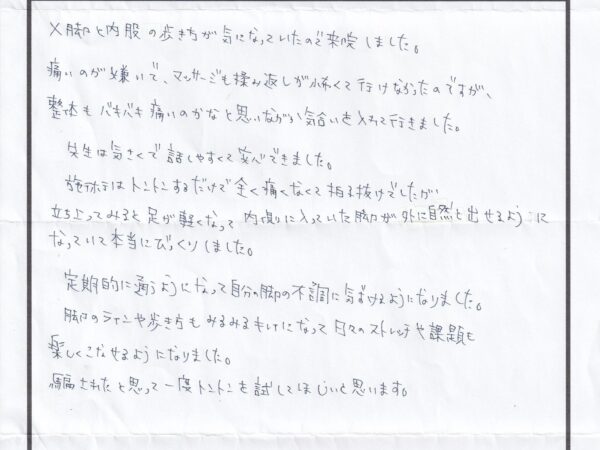 X脚と内股の歩き方が気になっていたので来院しました。
痛いのが嫌いで、マッサージも揉み返しが怖くて行けなかったのですが、
整体もバキバキ痛いのかなと思いながら気合いを入れて行きました。
先生は気さくで話しやすくて安心できました。
施術はトントンするだけで全く痛くなくて拍子抜けでしたが
立ち上ってみると足が軽くなって内側に入っていた脚が外に自然と出せるように
なっていて本当にびっくりしました。
定期的に通うようになって自分の脚の不調に気づけるようになりました。
脚のラインや歩き方もみるみるキレイになって日々のストレッチや課題も
楽しくこなせるようになりました。
騙されたと思って一度トントンを試してほしいと思います。